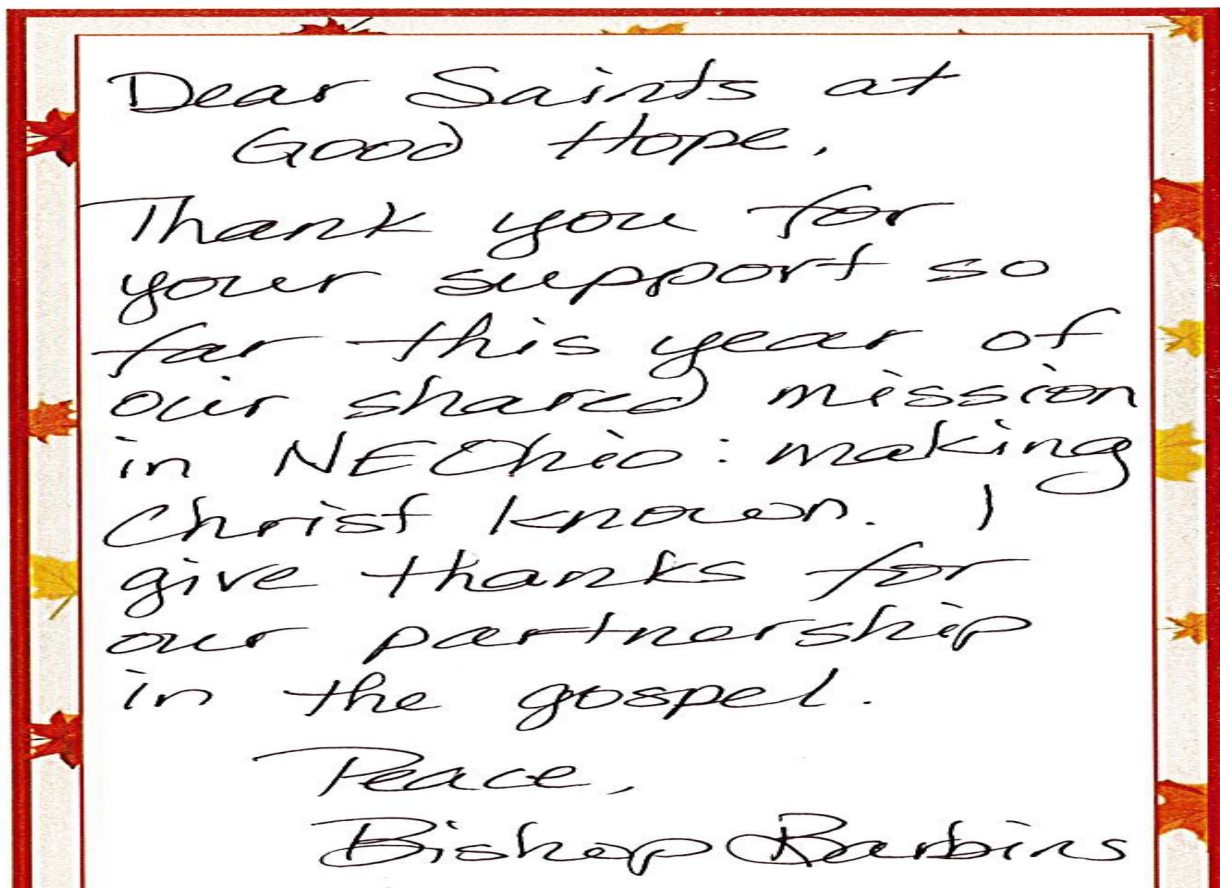 Dear Saints at
Good Hope,
Thank you for
your support so
far this year of
our shared mission
in NEOhio: making
Christ known. I
give thanks for
our partnership
in the gospel.
Peace,
Bishop Barbins